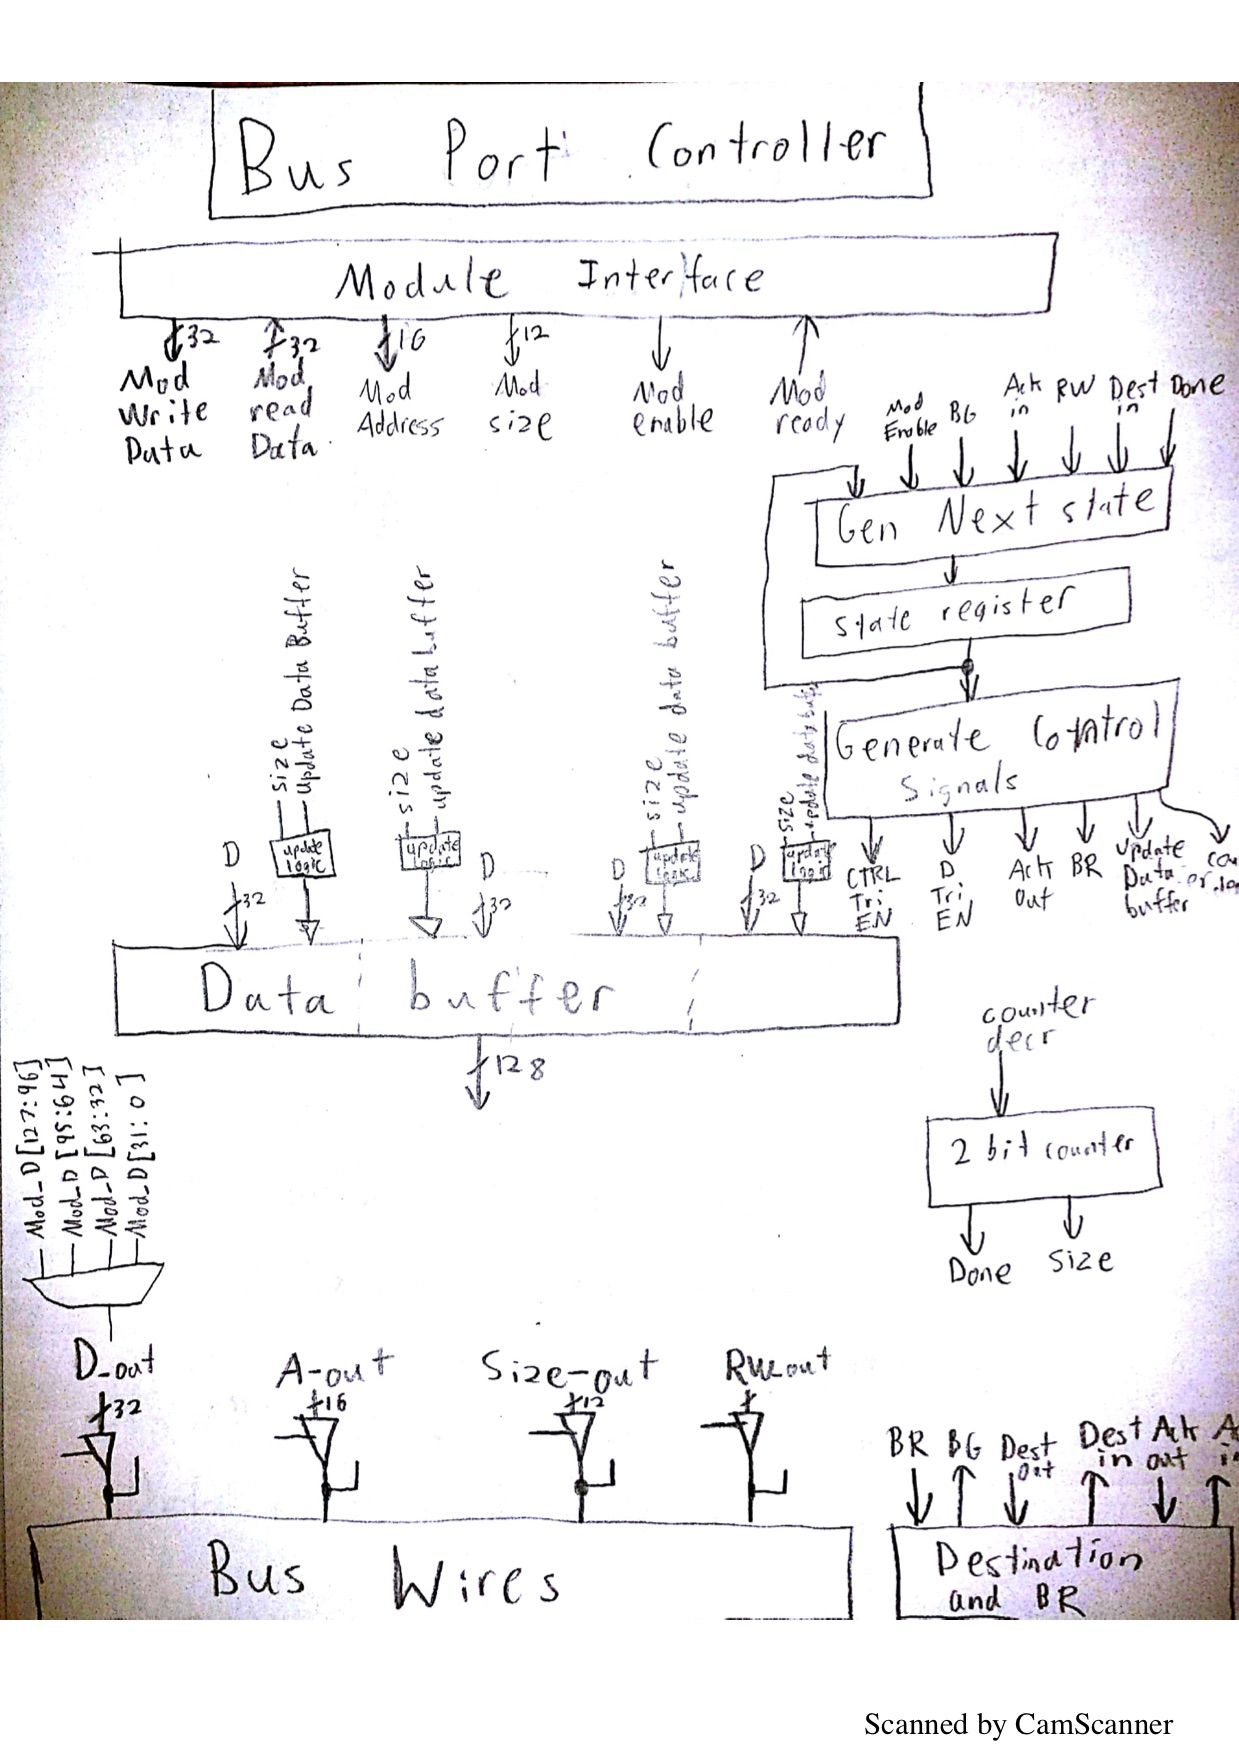 Bus Port Controller
Module Interface
32
32
16
12
Mod
Write
Data
Mod
read
Data
Mod
Address
Mod
size
Mod
enable
Mod
ready
Mod
Enable
BG
Ack
in
RW
Dest
in
Done
Gen Next state
state register
Generate Control
Signals
CTRL
Tri
EN
D
Tri
EN
Ack
Out
BR
update
Data
buffer
size
update Data Buffer
size
update data buffer
size
update data buffer
size
update data
update
logic
update
logic
update
logic
update
logic
D
32
D
32
D
32
D
32
Data buffer
128
counter
decr
2 bit counter
Done
Size
Mod_D[127:96]
Mod_D[95:64]
Mod_D[63:32]
Mod_D[31:0]
D_out
32
A-out
16
Size-out
12
RW_out
Bus Wires
BR
BG
Dest
out
Dest
in
Ack
out
in
Destination
and BR
Scanned by CamScanner